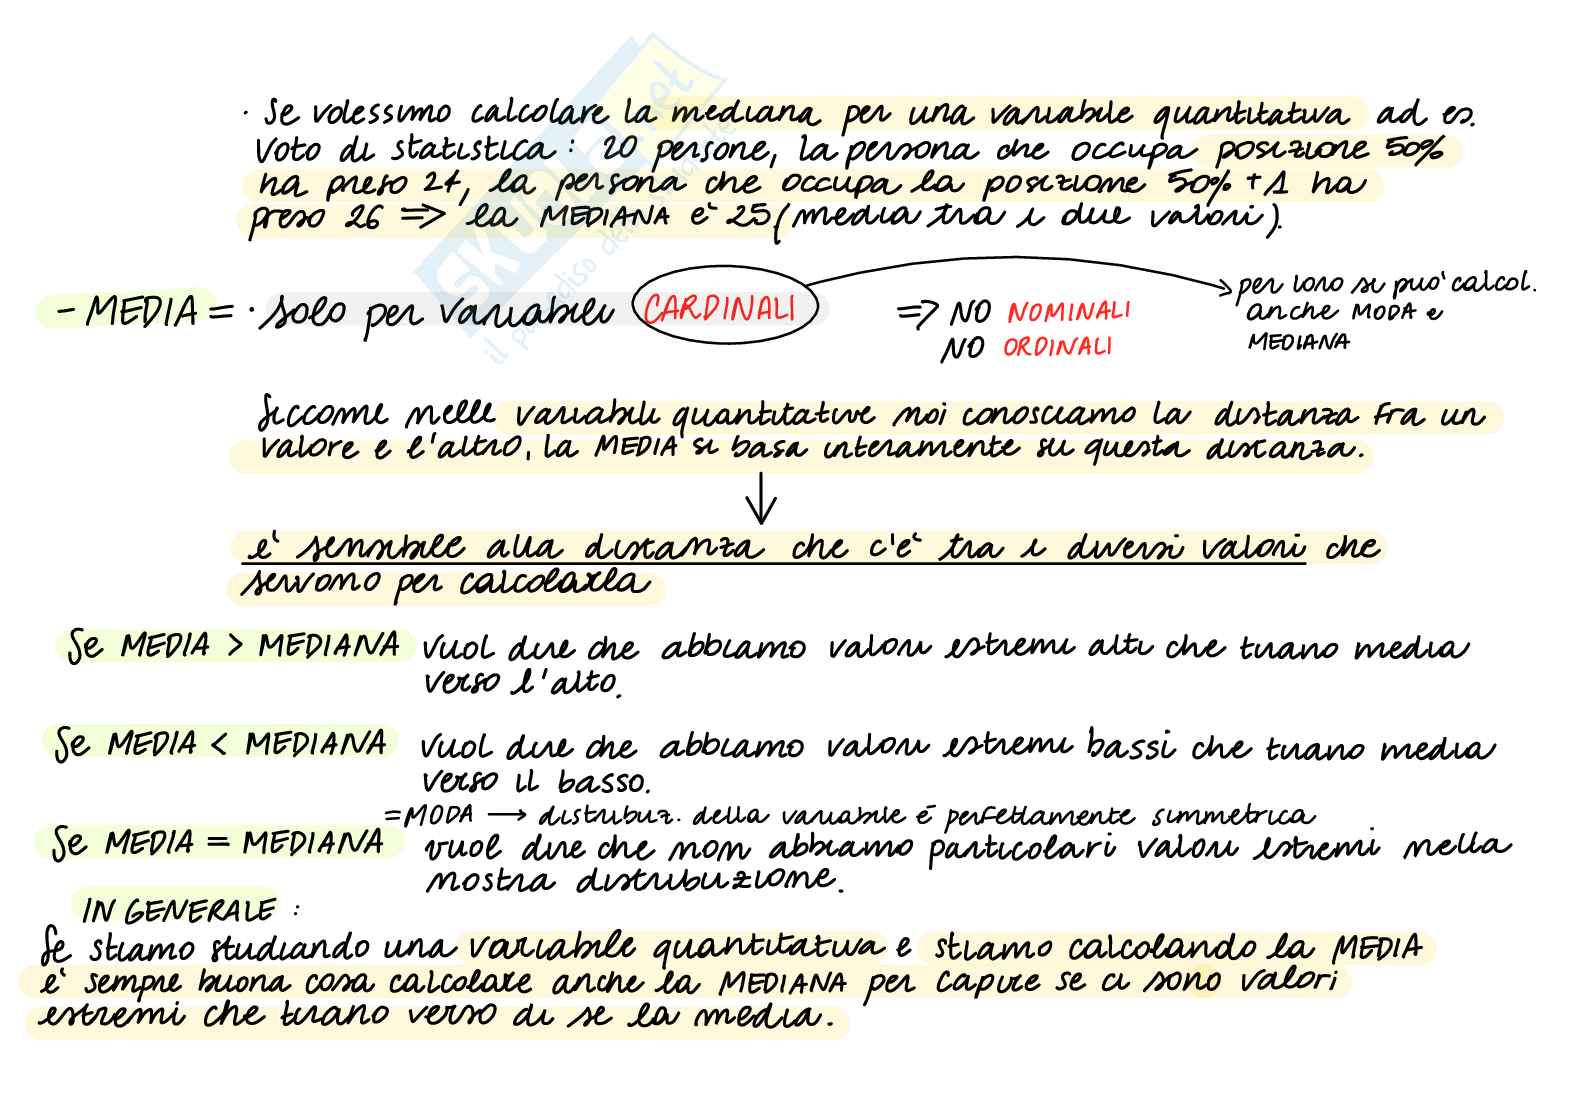 · Se volessimo calcolare la mediana per una variabile quantitativa ad es.
Voto di statistica: 20 persone, la persona che occupa posizione 50%
ha preso 24, la persona che occupa la posizione 50% + 1 ha
preso 26 => la MEDIANA è 25 (media tra i due valori).
- MEDIA = · solo per variabili CARDINALI => NO NOMINALI
NO ORDINALI
per loro si può calcol.
anche MODA e
MEDIANA
Siccome nelle variabili quantitative noi conosciamo la distanza fra un
valore e l'altro, la MEDIA si basa interamente su questa distanza.
è sensibile alla distanza che c'è tra i diversi valori che
servono per calcolarla
Se MEDIA > MEDIANA vuol dire che abbiamo valori estremi alti che tirano media
verso l'alto.
Se MEDIA < MEDIANA vuol dire che abbiamo valori estremi bassi che tirano media
verso il basso.
= MODA → distribuz. della variabile è perfettamente simmetrica
Se MEDIA = MEDIANA vuol dire che non abbiamo particolari valori estremi nella
nostra distribuzione.
IN GENERALE :
Se stiamo studiando una variabile quantitativa e stiamo calcolando la MEDIA
è sempre buona cosa calcolare anche la MEDIANA per capire se ci sono valori
estremi che tirano verso di se la media.
SKUOLA.net
il paradiso dello studente